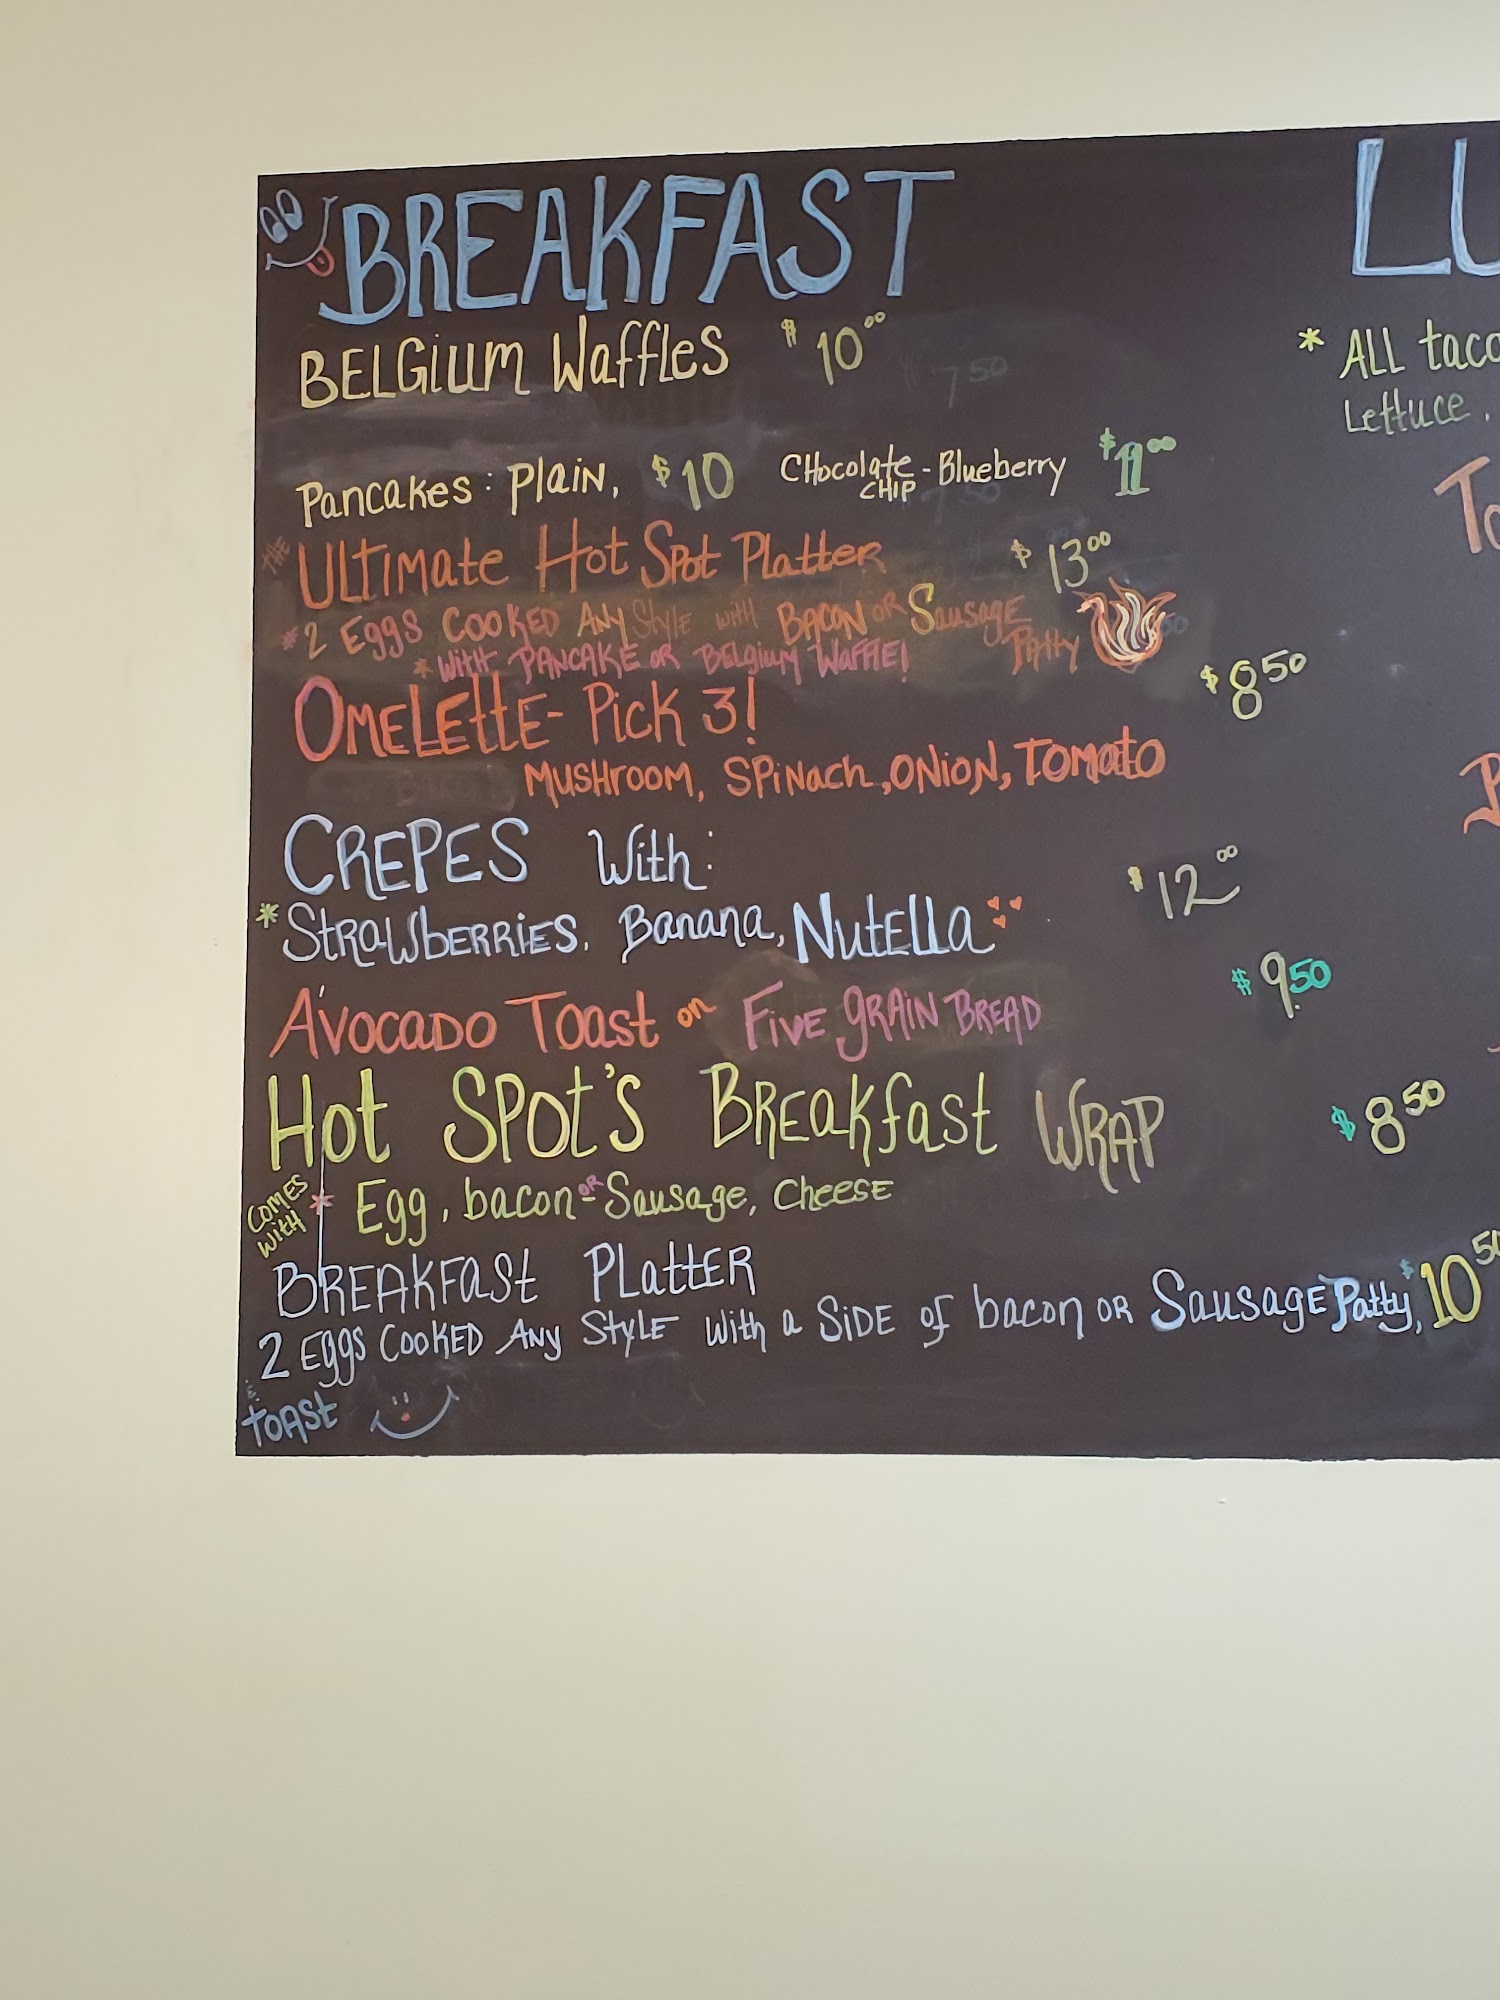 BREAKFAST
BELGium Waffles $10.00
Pancakes: Plain, $10 CHocolate CHIP - Blueberry $11.00
THE ULtimate Hot Spot Platter $13.00
*2 Eggs Cooked Any Style with Bacon or Sausage Patty
*with PANCAKE or Belgium Waffle!
OmeLette - Pick 3! $8.50
MusHroom, Spinach, Onion, Tomato
CREPES With:
*Strawberries, Banana, Nutella $12.00
Avocado Toast on Five Grain Bread $9.50
Hot Spot's Breakfast Wrap $8.50
Comes with * Egg, bacon or Sausage, Cheese
BREAKFast PLatter
2 Eggs Cooked Any Style With a Side of bacon or Sausage Patty, $10.50
& Toast
LU
* ALL taco
Lettuce,